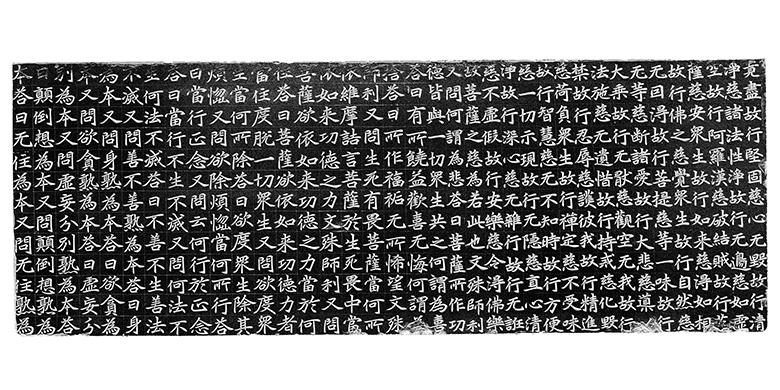 竟盡故行堅固慈心无毀故行清
淨慈諸法性淨故行无邊慈如虛
空故行阿羅漢慈破結賊故行菩
薩慈安眾生故行如來慈得如相
故行佛之慈覺眾生故行自然慈
无因得故行菩提慈等一味故行
无等慈斷諸愛故行大悲慈導以
大乘故行无厭慈觀空无我故行
法施慈无遺惜故行持戒慈化毀
禁故行忍辱慈護彼我故行精進
慈荷負眾生故行禪定慈不受味
故行智慧慈无不知時故行方便
慈一切示現故行无隱慈直心清
淨故行深心慈无雜行故行无誑
慈不虛假故行安樂慈令得佛樂
故菩薩之慈為若此也文殊師利
又問何謂為悲答曰菩薩所作功
德皆與一切眾生共之何謂為喜
答曰有所饒益歡喜无悔何謂為
捨答曰所作福祐无所悕望文殊
師利又問生死有畏菩薩當何所
依維摩詰言菩薩於生死畏中當
依如來功德之力文殊師利又問
菩薩欲依如來功德之力當於何
住答曰菩薩欲依如來功德力者
當住度脫一切眾生又問欲度眾
生當何所除答曰欲度眾生除其
煩惱又問欲除煩惱當何所行答
曰當行正念又問云何行於正念
答曰當行不生不滅又問何法不
生何法不滅答曰不善不生善法
不滅又問善不善熟為本答曰身
為本又問身熟為本答曰欲貪為
本又問欲貪熟為本答曰虛妄分
別為本又問虛妄分別熟為本答
曰顛倒想為本又問顛倒想熟為
本答曰无住為本又問无住熟為